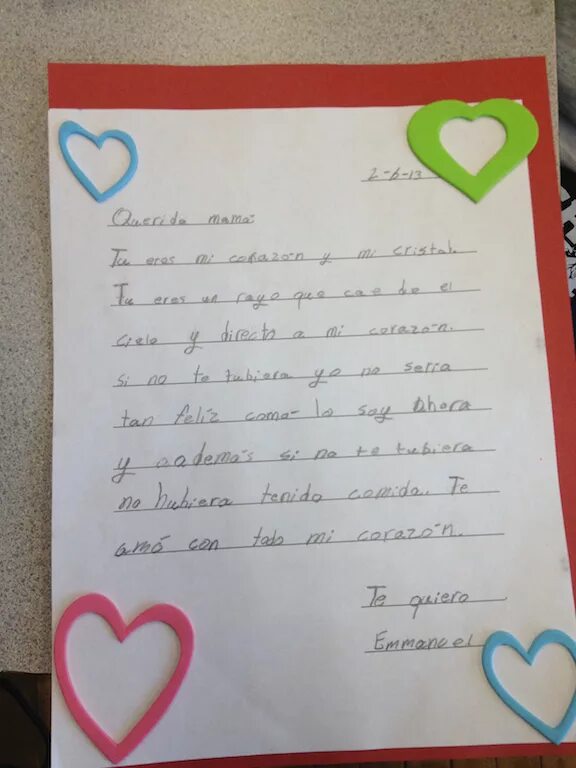 2-6-13
Querida mamá:
Tu eres mi corazón y mi cristal.
Tu eres un rayo que cae de el
cielo y directo a mi corazón.
si no te tubiera yo no seria
tan feliz como lo soy Ahora
y además si no te tubiera
no hubiera tenido comida. Te
amó con todo mi corazón.
Te quiero
Emmanuel